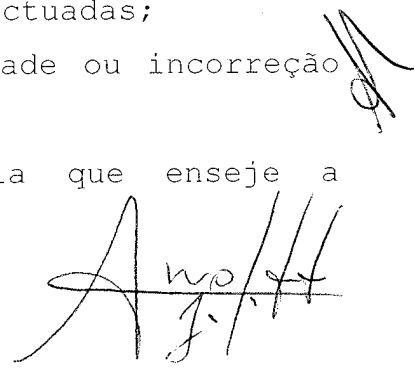 ctuadas;
ade ou incorreção
que enseje a